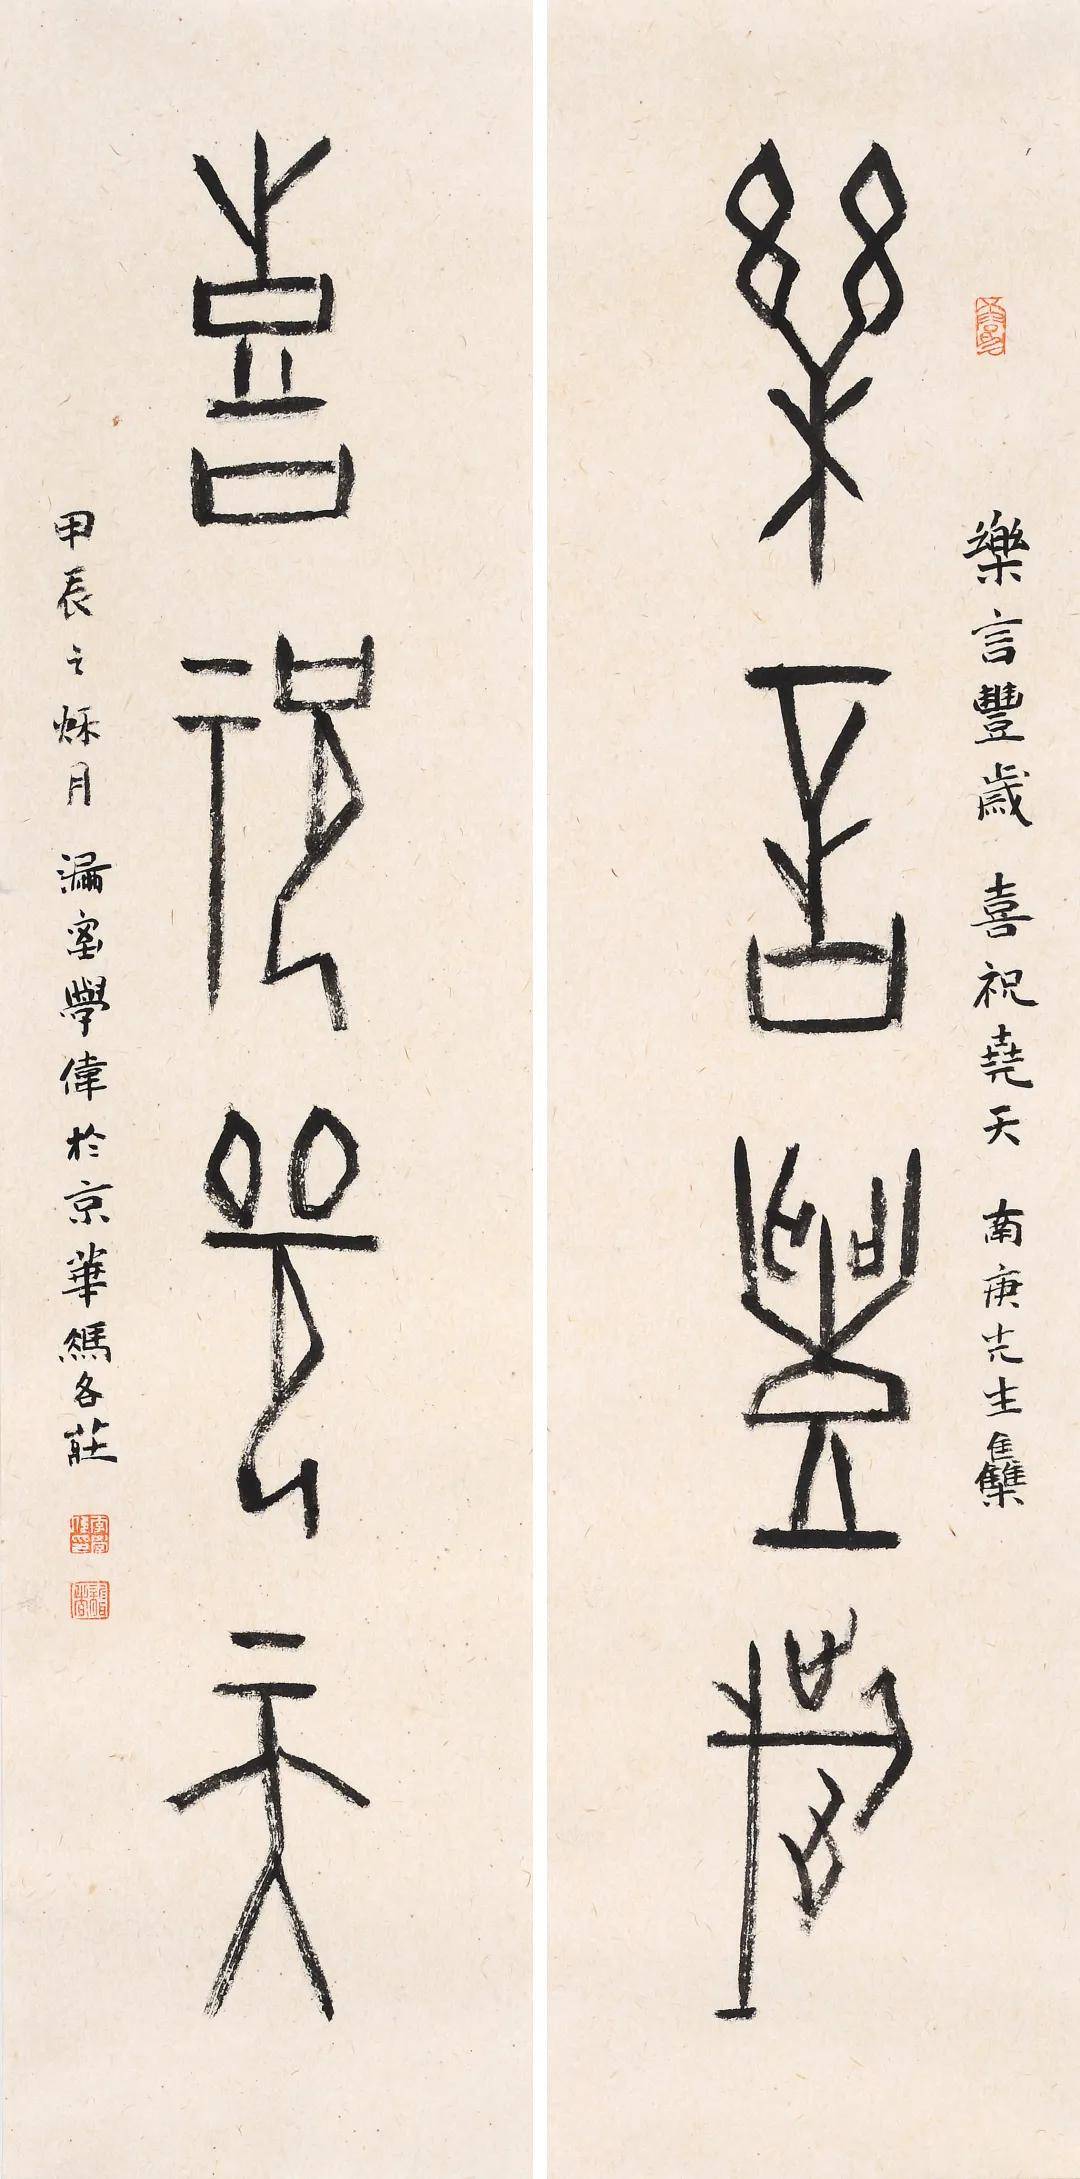 樂言豐歲
樂言豐歲 喜祝堯天 南庚先生雧
喜祝堯天
甲辰之穌月 漏室學偉於京華 各莊